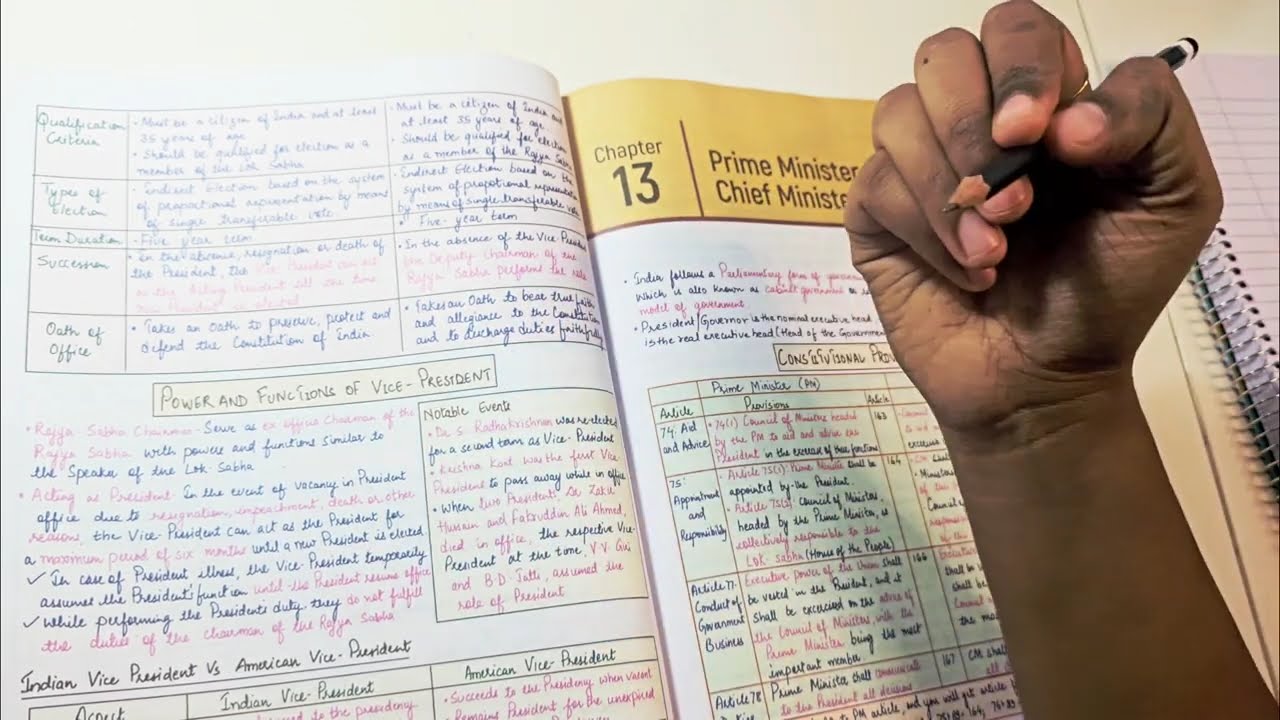 Qualification
Criteria
• Must be a citizen of India and at least
35 years of age
• Should be qualified for election as a
member of the Lok Sabha
• Must be a citizen of India and
at least 35 years of age
• Should be qualified for election
as a member of the Rajya Sabha
Types of
Election
• Indirect Election based on the system
of proportional representation by means
of single transferable vote
• Indirect Election based on the
system of propotional representation
by means of single transferable vote
Term Duration
• Five year term
• Five-year term
Succession
• In the absence, resignation or death of
the President, the Vice President can act
as the Acting President till the time
new President is elected
• In the absence of the Vice President
the Deputy chairman of the
Rajya Sabha performs the role
Oath of
Office
• Takes an Oath to preserve, protect and
defend the Constitution of India
• Takes an Oath to bear true faith
and allegiance to the Constitution
and to discharge duties faithfully
POWER AND FUNCTIONS OF VICE-PRESIDENT
• Rajya Sabha Chairman- Serve as ex officio Chairman of the
Rajya Sabha with powers and functions similar to
the Speaker of the Lok-Sabha
• Acting as President- In the event of vacancy in President
office due to resignation, impeachment, death or other
reasons, the Vice-President can act as the President for
a maximum period of six months until a new President is elected
✓ In case of President illness, the Vice-President temporarily
assumes the President's function until the President resume office
✓ While performing the Presidents duty, they do not fulfill
the duties of the chairman of the Rajya Sabha
Notable Events
• Dr. S. Radhakrishnan was re-elected
for a second term as Vice-President
• Krishna Kant was the first Vice-
President to pass away while in office
• When two President, Dr Zakir
Hussain and Fakruddin Ali Ahmed,
died in office, the respective Vice-
President at the time, V.V. Giri
and B.D. Jatti, assumed the
role of President
Indian Vice President Vs American Vice-President
Aspect
Indian Vice-President
American Vice-President
to the presidency
• Succeeds to the Presidency when vacant
• Remains President for the unexpired
Chapter
13
Prime Minister
Chief Ministe
• India follows a Parliamentary form of government
which is also known as cabinet government or
model of government.
• President/Governor is the nominal executive head
is the real executive head (Head of the Government
CONSTITUTIONAL PROV
Prime Minister (PM)
Article
Provisions
Article
74: Aid
and Advice
• 74(1) Council of Ministers headed
by the PM to aid and advice the
President in the exercise of their functions
163
75:
Appointment
and
Responsibility
• Article 75(1): Prime Minister shall be
appointed by the President.
• Article 75(3): Council of Ministers,
headed by the Prime Minister, is
collectively responsible to the
Lok Sabha (House of the People)
164
Article 77:
Conduct of
Government
Business
Executive power of the Union shall
be vested in the President, and it
shall be excercised on the advice of
the Council of Ministers, with the
Prime Minister being the most
important member.
166
Article 78
Prime Minister shall communicate
to the President all decisions
167
CM shall